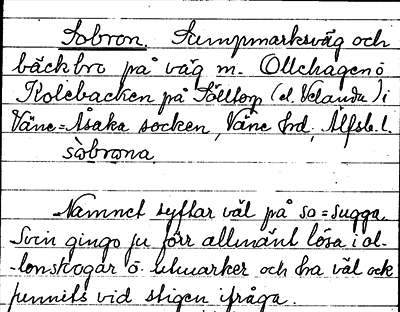 Sobron. Sumpmarksväg och
bäckbro på väg m. Ollehagen o
Kolebacken på Sälltorp (el. Velanda) i
Väne-Åsaka socken, Väne hrd, Älfsb. l.
såbrona
Namnet syftar väl på so = sugga.
Svin gingo ju förr allmänt lösa i ol-
-lonskogar o utmarker och ha väl ock
funnits vid stigen ifråga.